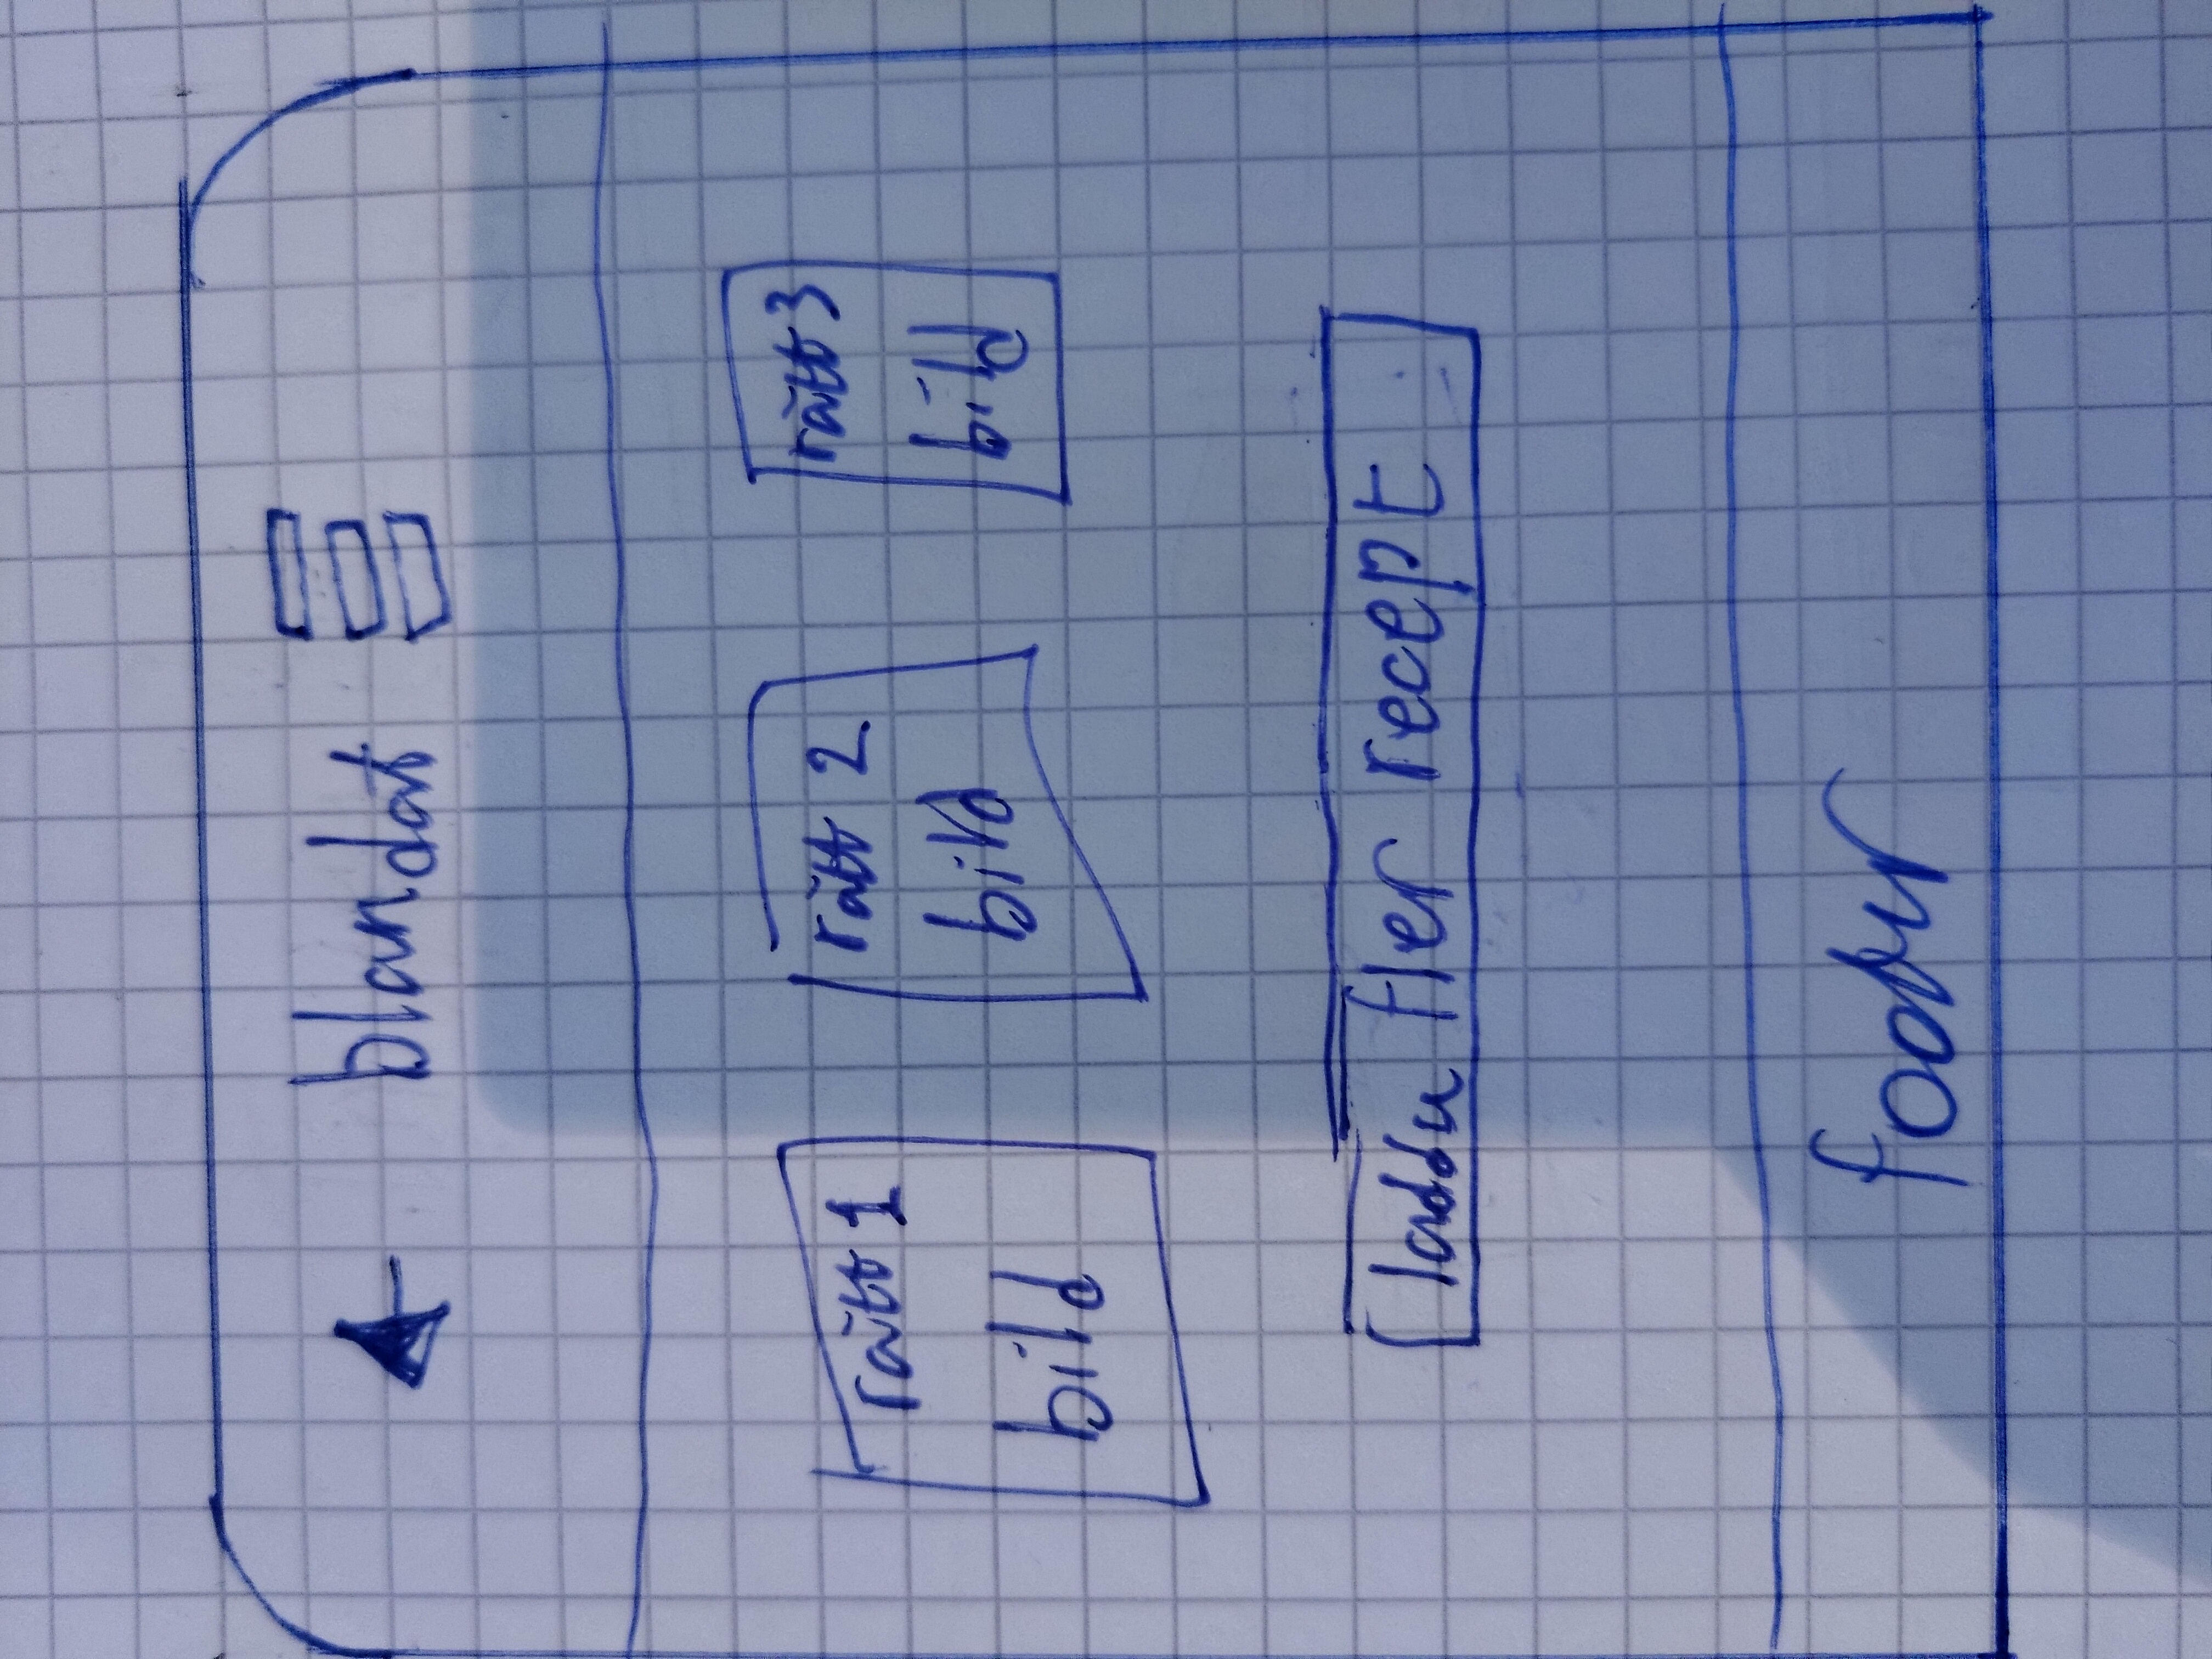 blandat
rätt 1
bild
rätt 2
bild
rätt 3
bild
ladda fler recept
footer